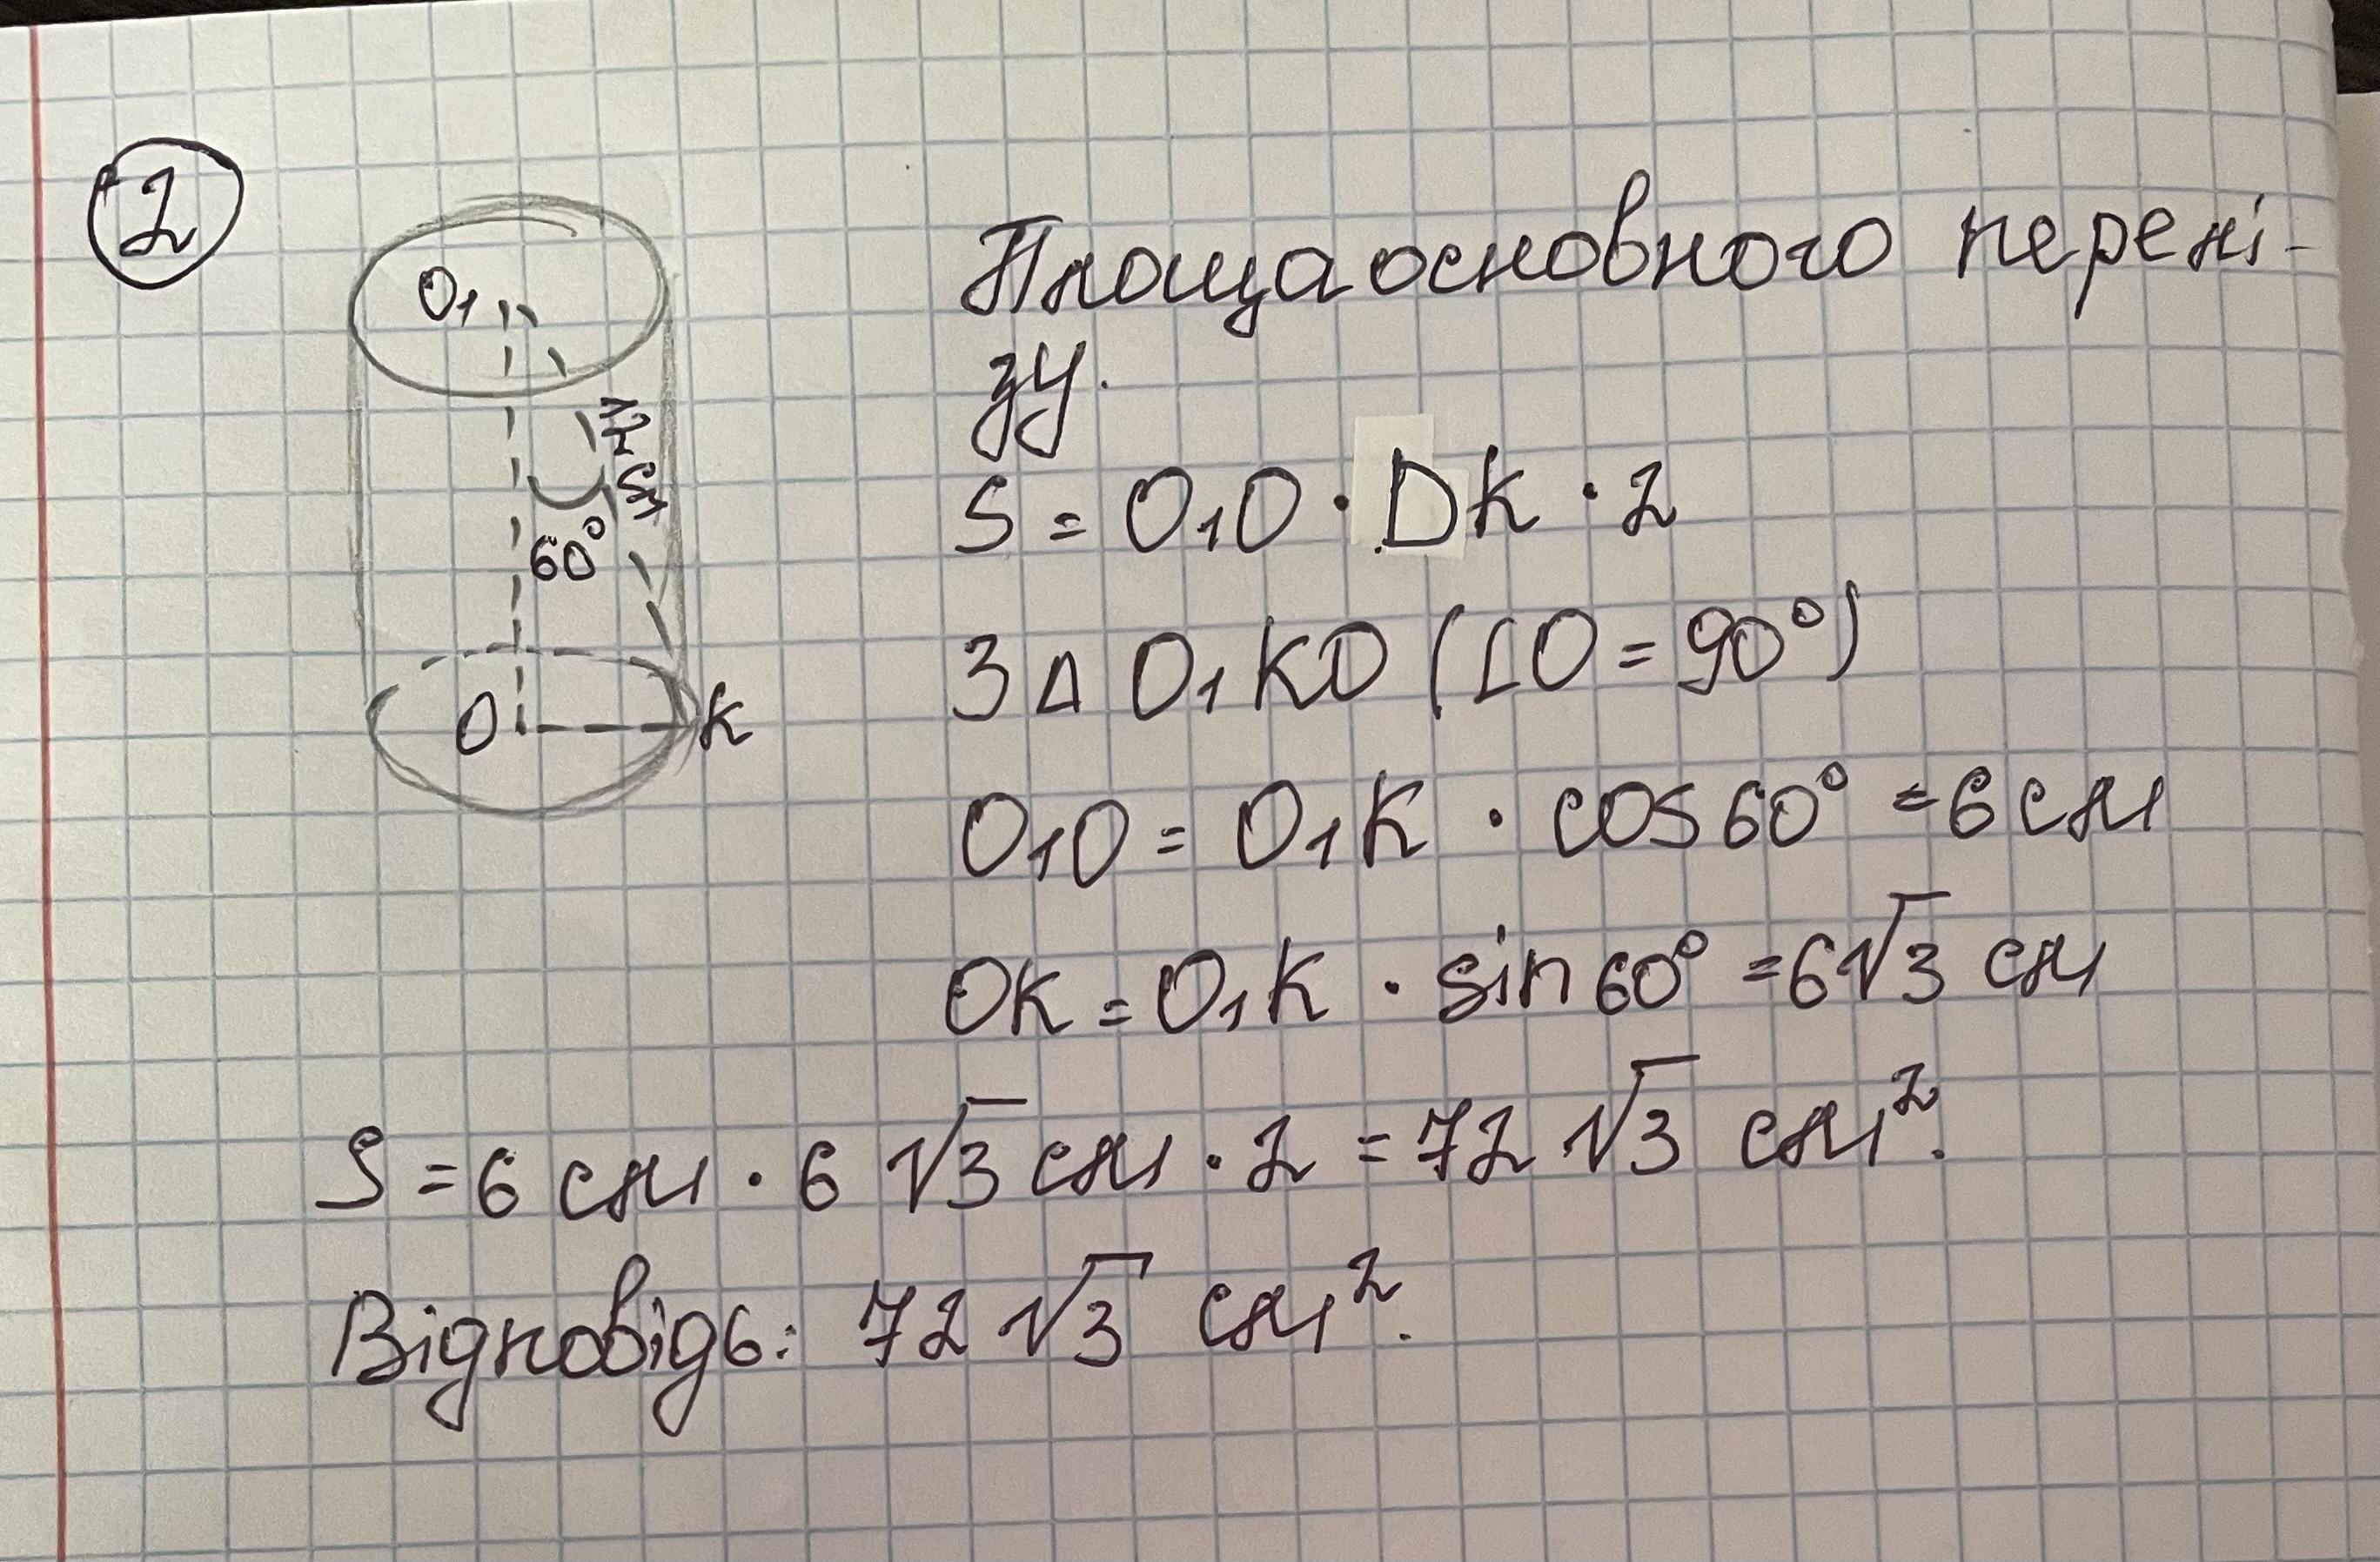 2
O₁
12 см
60°
O K
Площа основного перері-
зу.
S = O₁O · DK · 2
З Δ O₁KO (∠O = 90°)
O₁O = O₁K · cos 60° = 6 см
OK = O₁K · sin 60° = 6√3 см
S = 6 см · 6√3 см · 2 = 72√3 см².
Відповідь: 72√3 см².